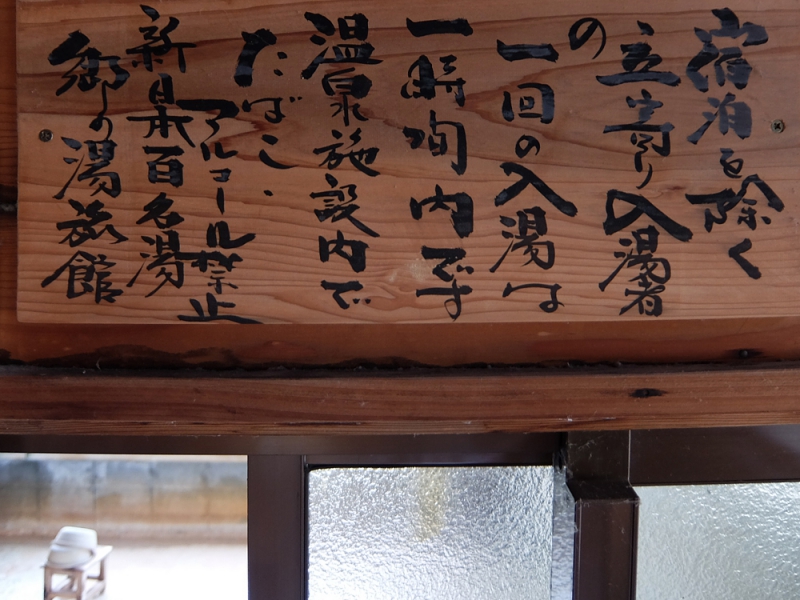 宿泊を除く
の立寄り入湯者
一回の入湯は
一時間内です
温泉施設内で
たばこ、
アルコール禁止
新日本百名湯
郷の湯旅館